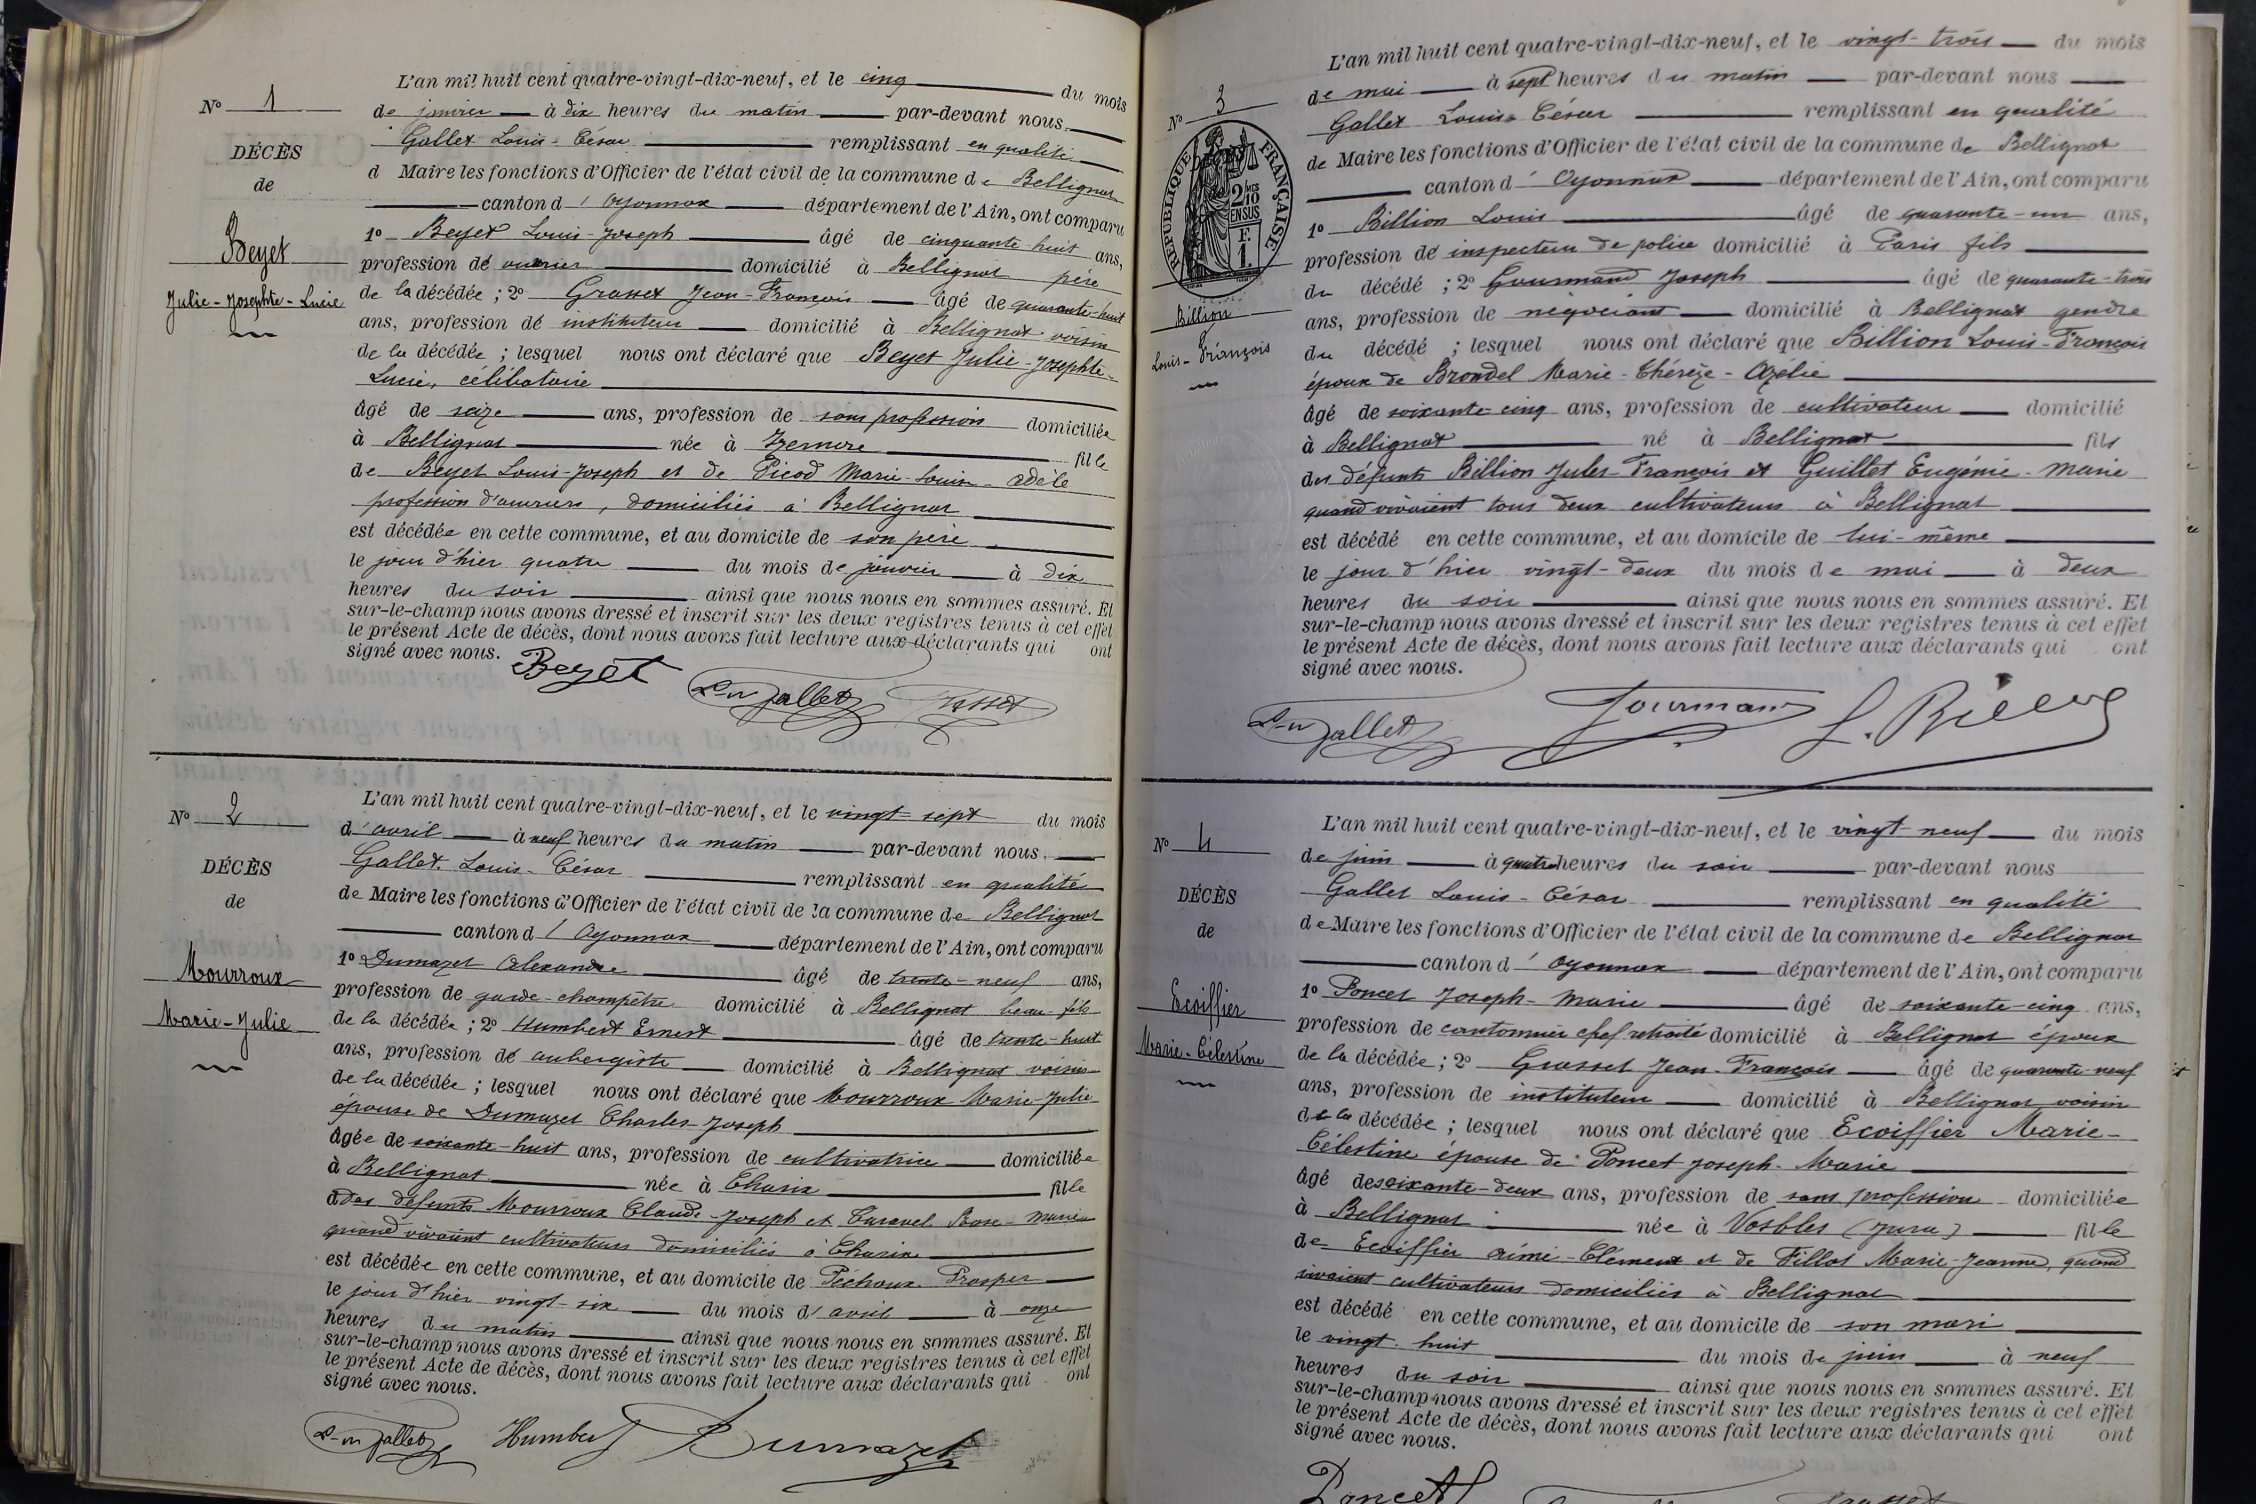 N° 1
DÉCÈS
de
Beyet
Julie-Josephte-Lucie
L'an mil huit cent quatre-vingt-dix-neuf, et le cinq du mois
de janvier à dix heures du matin par-devant nous
Gallet Louis-César remplissant en qualité
d Maire les fonctions d'Officier de l'état civil de la commune de Bellignat
canton d'Oyonnax département de l'Ain, ont comparu
1° Beyet Louis-Joseph âgé de cinquante-huit ans,
profession de ouvrier domicilié à Bellignat père
de la décédée ; 2° Grasset Jean-François âgé de quarante-huit
ans, profession de instituteur domicilié à Bellignat voisin
de la décédée ; lesquel nous ont déclaré que Beyet Julie-Josephte-
Lucie, célibataire
âgé de seize ans, profession de sans profession domiciliée
à Bellignat née à Izernore fille
de Beyet Louis-Joseph et de Picod Marie-Louise-Adèle
profession d'ouvriers, domiciliés à Bellignat
est décédée en cette commune, et au domicile de son père
le jour d'hier quatre du mois de janvier à dix
heures du soir ainsi que nous nous en sommes assuré. Et
sur-le-champ nous avons dressé et inscrit sur les deux registres tenus à cet effet
le présent Acte de décès, dont nous avons fait lecture aux déclarants qui ont
signé avec nous.
Beyet Gallet Grasset
N° 2
DÉCÈS
de
Mourroux
Marie-Julie
L'an mil huit cent quatre-vingt-dix-neuf, et le vingt-sept du mois
d'avril à neuf heures du matin par-devant nous
Gallet Louis-César remplissant en qualité
de Maire les fonctions d'Officier de l'état civil de la commune de Bellignat
canton d'Oyonnax département de l'Ain, ont comparu
1° Dumazet Alexandre âgé de trente-neuf ans,
profession de garde-champêtre domicilié à Bellignat beau-fils
de la décédée ; 2° Humbert Ernest âgé de trente-huit
ans, profession de aubergiste domicilié à Bellignat voisin
de la décédée ; lesquel nous ont déclaré que Mourroux Marie-Julie
épouse de Dumazet Charles-Joseph
âgée de soixante-huit ans, profession de cultivatrice domiciliée
à Bellignat née à Charix fille
des défunts Mourroux Claude-Joseph et Caravel Rose-Marie
quand vivaient cultivateurs domiciliés à Charix
est décédée en cette commune, et au domicile de Péchoux Prosper
le jour d'hier vingt-six du mois d'avril à onze
heures du matin ainsi que nous nous en sommes assuré. Et
sur-le-champ nous avons dressé et inscrit sur les deux registres tenus à cet effet
le présent Acte de décès, dont nous avons fait lecture aux déclarants qui ont
signé avec nous.
Gallet Humbert Dumazet
N° 3
RÉPUBLIQUE FRANÇAISE
2/10
EN SUS
F.
1.
Billion
Louis-François
L'an mil huit cent quatre-vingt-dix-neuf, et le vingt-trois du mois
de mai à sept heures du matin par-devant nous
Gallet Louis-César remplissant en qualité
de Maire les fonctions d'Officier de l'état civil de la commune de Bellignat
canton d'Oyonnax département de l'Ain, ont comparu
1° Billion Louis âgé de quarante-un ans,
profession de inspecteur de police domicilié à Paris fils
du décédé ; 2° Gourmand Joseph âgé de quarante-trois
ans, profession de négociant domicilié à Bellignat gendre
du décédé ; lesquel nous ont déclaré que Billion Louis-François
époux de Brondel Marie-Thérèze-Azélie
âgé de soixante-cinq ans, profession de cultivateur domicilié
à Bellignat né à Bellignat fils
des défunts Billion Jules-François et Guillet Eugénie-Marie
quand vivaient tous deux cultivateurs à Bellignat
est décédé en cette commune, et au domicile de lui-même
le jour d'hier vingt-deux du mois de mai à deux
heures du soir ainsi que nous nous en sommes assuré. Et
sur-le-champ nous avons dressé et inscrit sur les deux registres tenus à cet effet
le présent Acte de décès, dont nous avons fait lecture aux déclarants qui ont
signé avec nous.
Gallet Gourmand L. Billion
N° 4
DÉCÈS
de
Ecoiffier
Marie-Célestine
L'an mil huit cent quatre-vingt-dix-neuf, et le vingt-neuf du mois
de juin à quatre heures du soir par-devant nous
Gallet Louis-César remplissant en qualité
de Maire les fonctions d'Officier de l'état civil de la commune de Bellignat
canton d'Oyonnax département de l'Ain, ont comparu
1° Poncet Joseph-Marie âgé de soixante-cinq ans,
profession de cantonnier chef retraité domicilié à Bellignat époux
de la décédée ; 2° Grasset Jean-François âgé de quarante-neuf
ans, profession de instituteur domicilié à Bellignat voisin
de la décédée ; lesquel nous ont déclaré que Ecoiffier Marie-
Célestine épouse de Poncet Joseph-Marie
âgé de soixante-deux ans, profession de sans profession domiciliée
à Bellignat née à Vosbles (Jura) fille
de Ecoiffier Aimé-Clément et de Fillot Marie-Jeanne, quand
vivaient cultivateurs domiciliés à Bellignat
est décédé en cette commune, et au domicile de son mari
le vingt-huit du mois de juin à neuf
heures du soir ainsi que nous nous en sommes assuré. Et
sur-le-champ nous avons dressé et inscrit sur les deux registres tenus à cet effet
le présent Acte de décès, dont nous avons fait lecture aux déclarants qui ont
signé avec nous.
Poncet